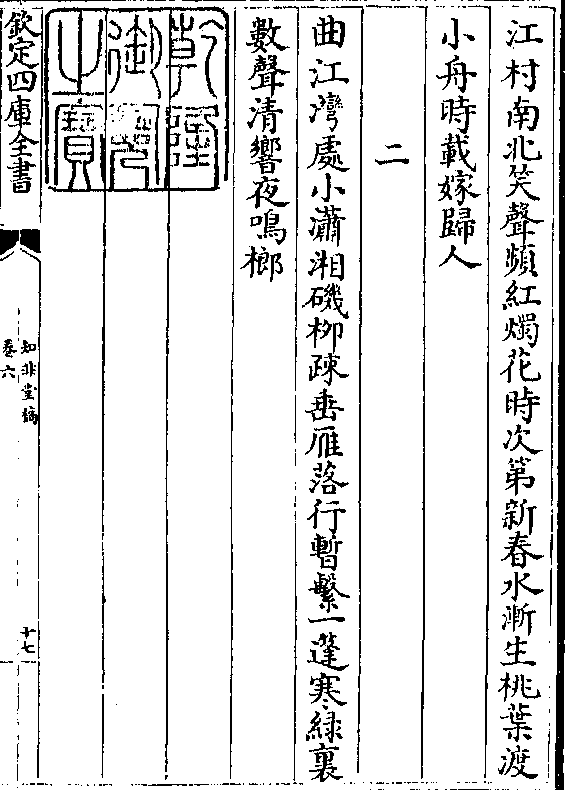 江村南北笑聲頻紅燭花時次第新春水漸生桃葉渡
小舟時載嫁歸人
二
曲江灣處小瀟湘磯栁疎垂雁落行暫繫一蓬寒緑裏
數聲清響夜鳴榔
乾隆御覽之寶
欽定四庫全書
知非堂稿
卷六
十七